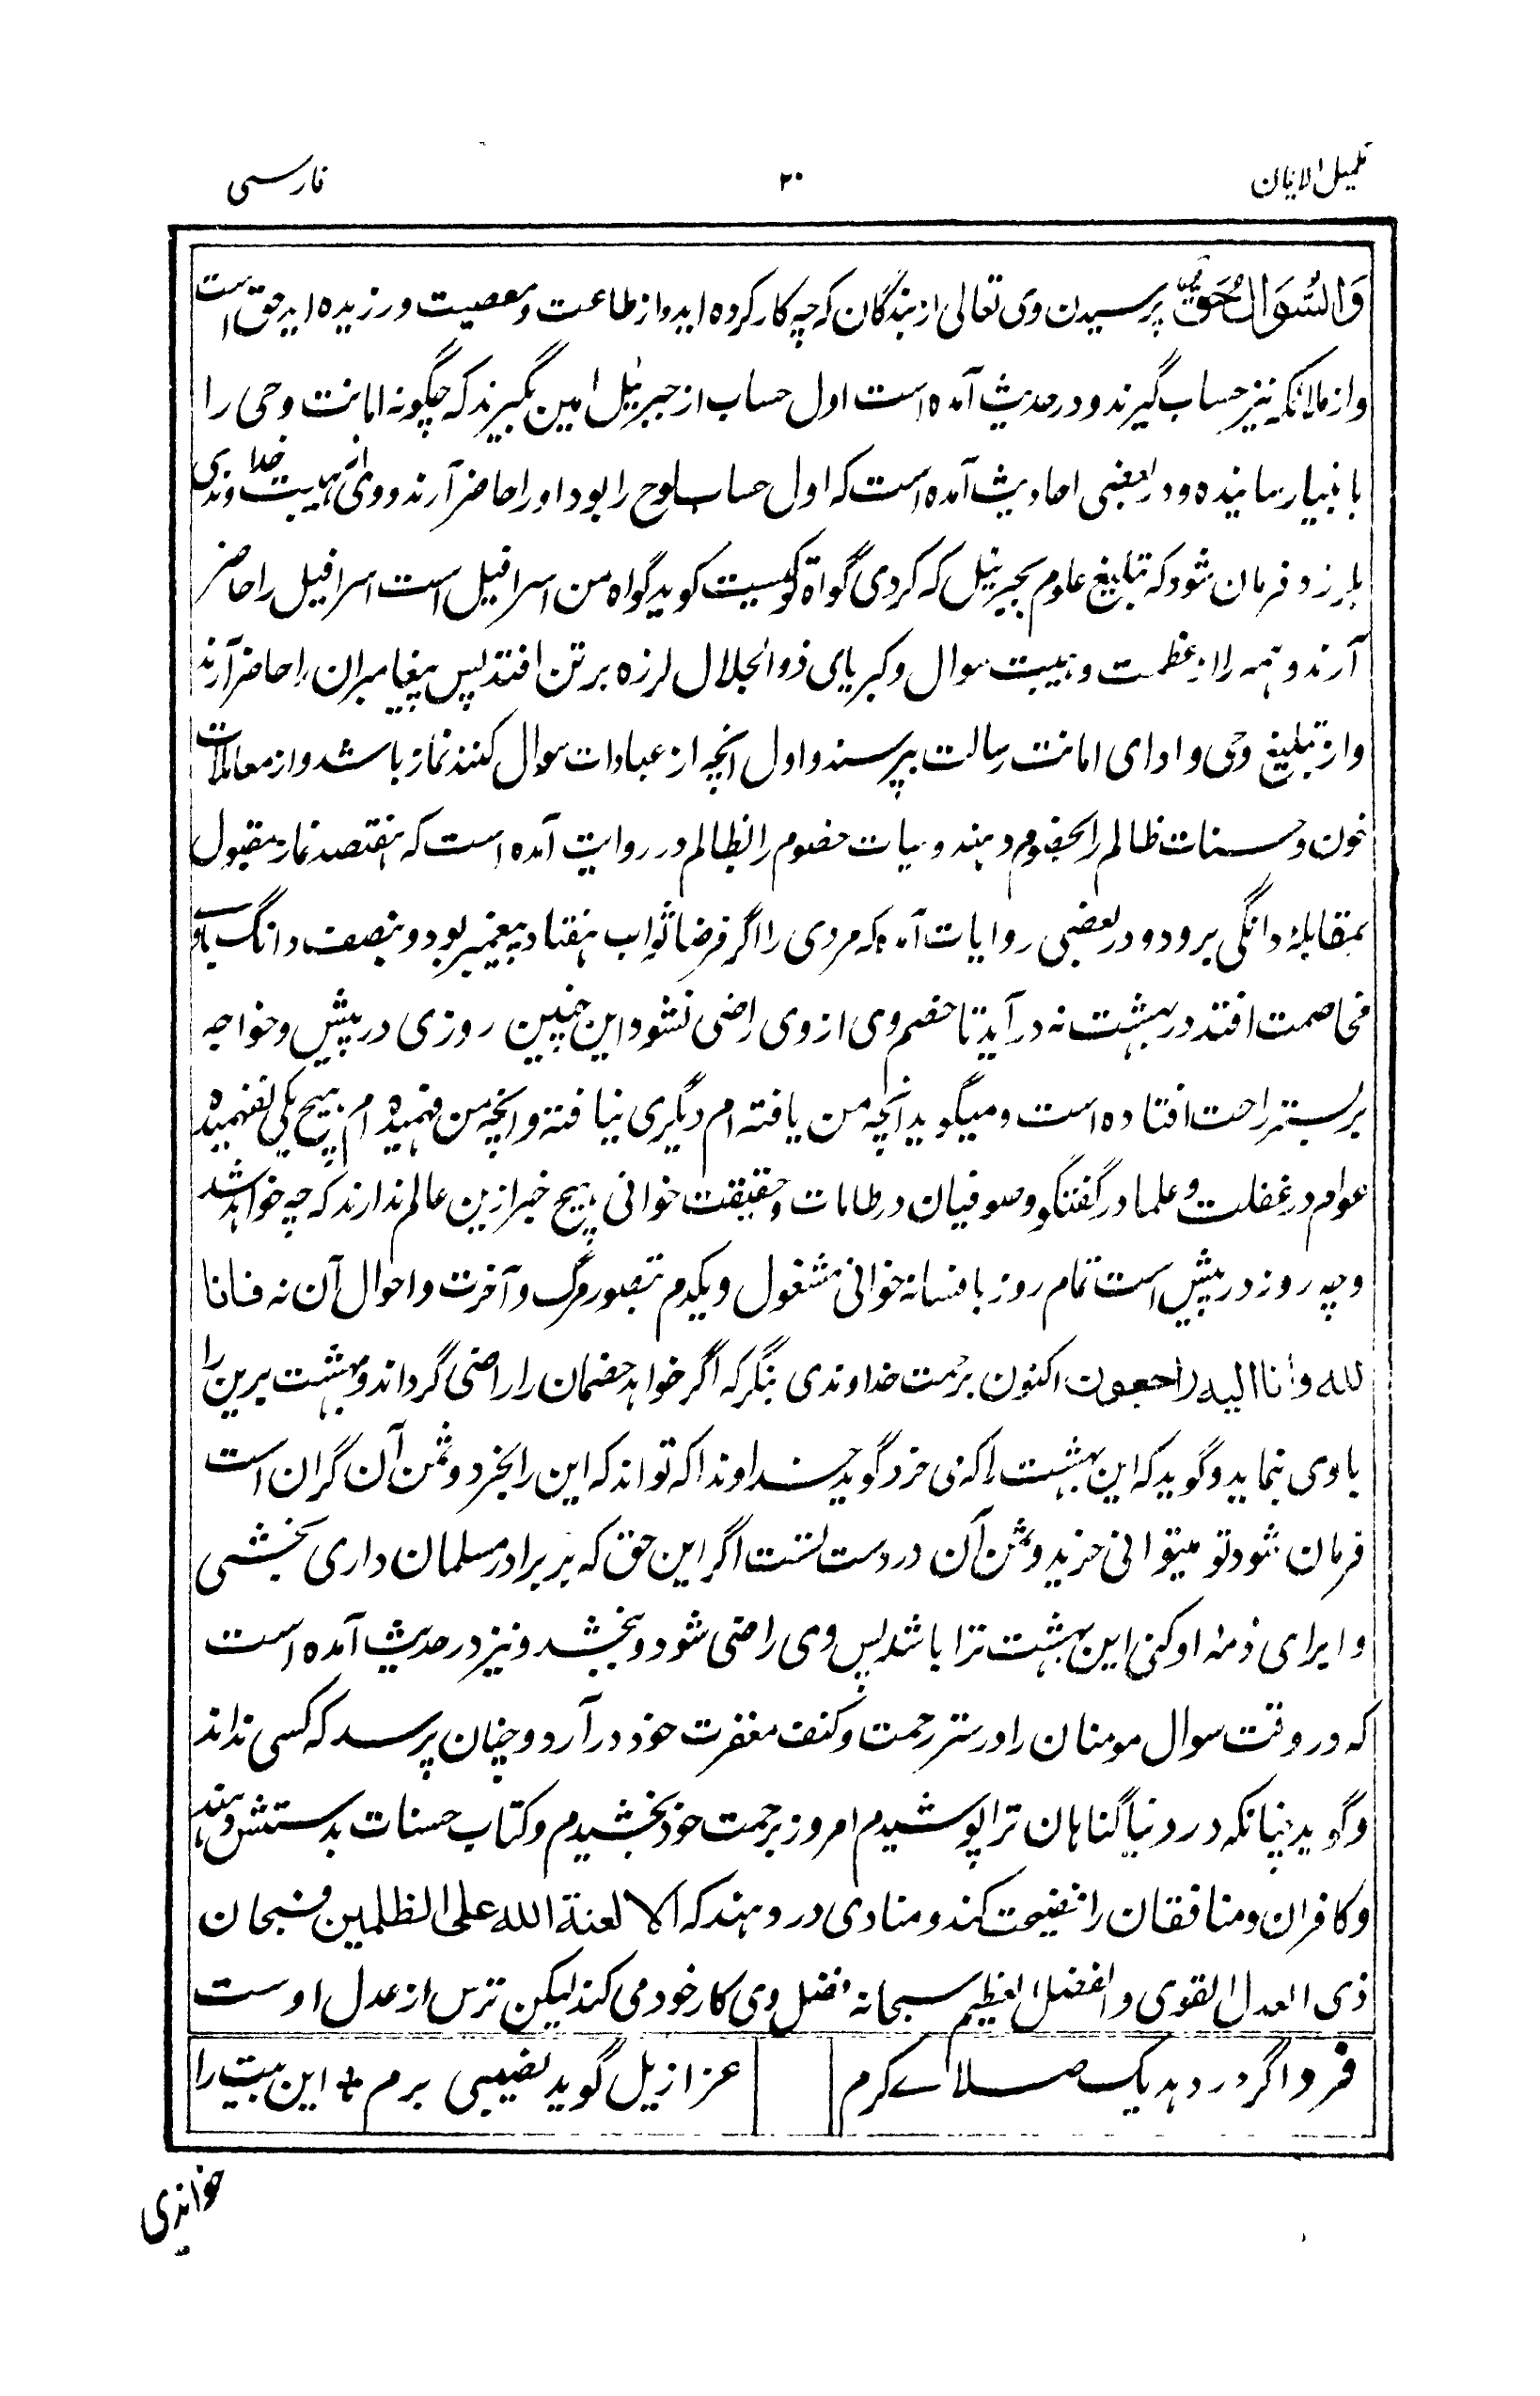 تکمیل الایمان
۲۰
فارسی
وَالسُّوَالُ حَقٌّ پرسیدن وی تعالی از بندگان که چه کار کرده اید و از طاعت و معصیت ورزیده اید حق است
و از ملائکه نیز حساب گیرند و در حدیث آمده است اول حساب از جبرئیل امین بگیرند که چگونه امانت وحی را
بانبیا رسانیده و در بعضی احادیث آمده است که اول حساب لوح را بود او را حاضر آرند و وی از هیبت خداوندی
بلرزد و فرمان شود که تبلیغ علوم بجبرئیل که کردی گواه تو کیست گوید گواه من اسرافیل است اسرافیل را حاضر
آرند و همه را از عظمت و هیبت سوال و کبریای ذوالجلال لرزه بر تن افتد پس پیغامبران را حاضر آرند
و از تبلیغ وحی و ادای امانت رسالت بپرسند و اول آنچه از عبادات سوال کنند نماز باشد و از معاملات
خون و حسنات ظالم را بخصوم دهند و سیات خصوم را بظالم در روایت آمده است که هفتصد نماز مقبول
بمقابلهٔ دانگی برود و در بعضی روایات آمده که مردی را اگر فرضا ثواب هفتاد پیغمبر بود و بنصف دانگ باوے
مخاصمت افتد در بهشت نه در آید تا خصم وی از وی راضی نشود این چنین روزی در پیش و خواجه
بر بستر راحت افتاده است و میگوید آنچه من یافته ام دیگری نیافته و آنچه من فهمیده ام هیچ یکی نفهمیده
عوام در غفلت و علما در گفتگو و صوفیان در طامات و حقیقت خوانی هیچ خبر ازین عالم ندارند که چه خواهد شد
و چه روز در پیش است تمام روز بافسانه خوانی مشغول و یکدم بتصور مرگ و آخرت و احوال آن نه فانا
لله وانا الیه راجعون اکنون برحمت خداوندی بنگر که اگر خواهد خصمان را راضی گرداند و بهشت برین را
باوی بنماید و گوید که این بهشت را که می خرد گوید خداوندا که تواند که این را بخرد و ثمن آن گران است
فرمان شود تو میتوانی خرید و ثمن آن در دست تست اگر این حق که بر برادر مسلمان داری بخشی
و ابرای ذمهٔ او کنی این بهشت ترا باشد پس وی راضی شود و ببخشد و نیز در حدیث آمده است
که در وقت سوال مومنان را در ستر رحمت و کنف مغفرت خود در آرد و چنان پرسد که کسی نداند
و گوید چنانکه در دنیا گناهان ترا پوشیدم امروز برحمت خود بخشیدم و کتاب حسنات بدستش دهند
و کافران و منافقان را فضیحت کند و منادی در دهند که الا لعنة الله علی الظلمین فسبحان
ذی العدل القوی والفضل العظیم سبحانه فضل وی کار خود می کند لیکن ترس از عدل اوست
فردا گر در دهد یک صلاے کرم
عزازیل گوید نصیبی برم + این بیت را
خواندی